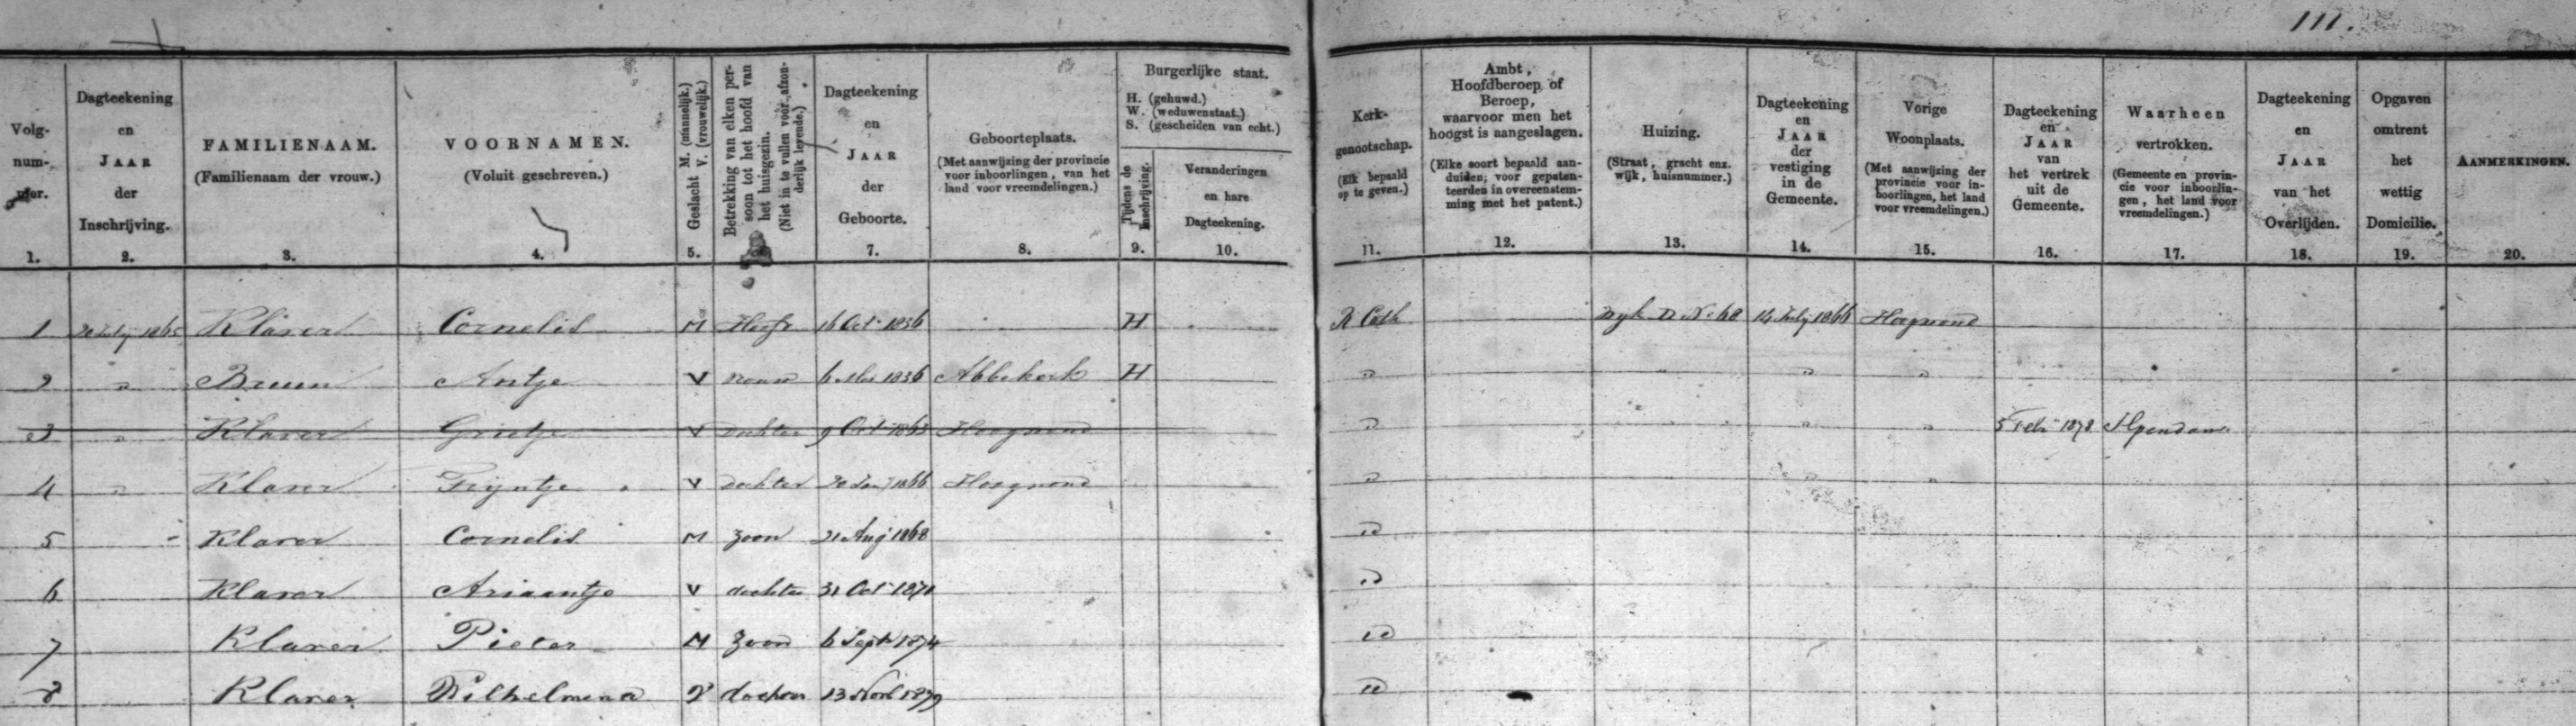 111.
Volg-
num-
mer.
1.
Dagteekening
en
JAAR
der
Inschrijving.
2.
FAMILIENAAM.
(Familienaam der vrouw.)
3.
VOORNAMEN.
(Voluit geschreven.)
4.
Geslacht M. (mannelijk.)
V. (vrouwelijk.)
5.
Betrekking van elken per-
soon tot het hoofd van
het huisgezin.
(Niet in te vullen voor afzon-
derlijk levende.)
Dagteekening
en
JAAR
der
Geboorte.
7.
Geboorteplaats.
(Met aanwijzing der provincie
voor inboorlingen, van het
land voor vreemdelingen.)
8.
Burgerlijke staat.
H. (gehuwd.)
W. (weduwenstaat.)
S. (gescheiden van echt.)
Tijdens de
Inschrijving.
9.
Veranderingen
en hare
Dagteekening.
10.
Kerk-
genootschap.
(Elk bepaald
op te geven.)
11.
Ambt,
Hoofdberoep of
Beroep,
waarvoor men het
hoogst is aangeslagen.
(Elke soort bepaald aan-
duiden; voor gepaten-
teerden in overeenstem-
ming met het patent.)
12.
Huizing.
(Straat, gracht enz.
wijk, huisnummer.)
13.
Dagteekening
en
JAAR
der
vestiging
in de
Gemeente.
14.
Vorige
Woonplaats.
(Met aanwijzing der
provincie voor in-
boorlingen, het land
voor vreemdelingen.)
15.
Dagteekening
en
JAAR
van
het vertrek
uit de
Gemeente.
16.
Waarheen
vertrokken.
(Gemeente en provin-
cie voor inboorlin-
gen, het land voor
vreemdelingen.)
17.
Dagteekening
en
JAAR
van het
Overlijden.
18.
Opgaven
omtrent
het
wettig
Domicilie.
19.
AANMERKINGEN.
20.
1 Klaver Cornelis M Hoofd 16 Oct 1836 H R Cath Wyk D No 68 14 July 1866 Hoogwoud
2 " Bruin Antje V vrouw 6 1836 Abbekerk H " " "
3 " Klaver Grietje V dochter 9 Oct 1863 Hoogwoud " " " 5 Feb 1878 Ilpendam
4 " Klaver Tryntje V dochter 20 Jan 1866 Hoogwoud " " "
5 Klaver Cornelis M Zoon 21 Aug 1868 id
6 Klaver Ariaantje V dochter 31 Oct 1871 id
7 Klaver Pieter M Zoon 6 Sept 1874 id
8 Klaver Wilhelmina V dochter 13 1879 id